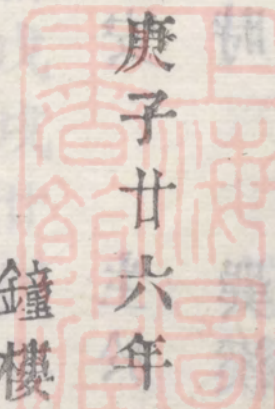 庚子廿六年
鐘樓